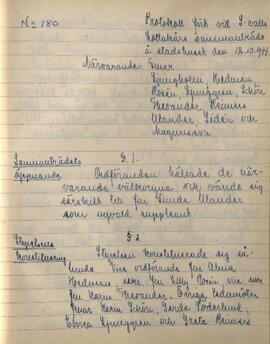 No 180
Protokoll fört vid S-valls
Lottakårs sammanträde
å stadshuset den 12.10.1944.
Närvarande: Fruar
Ljungholm, Hedman,
Rosén, Ljunggren, Schön,
Thelander, Reimers
Ulander, Lidén och
Magnusson
Sammanträdets
öppnande
§ 1.
Ordföranden hälsade de när-
varande välkomna och vände sig
särskilt till fru Ulander
som nyvald suppleant.
Styrelsens
konstituering
§ 2
Styrelsen konstituerade sig så-
lunda: Vice ordförande fru Alma
Hedman, sekr. fru Lilly Rosén, vice sekr.
fru Karin Thelander. Övriga ledamöter:
fruar Karin Schön, Gerda Söderlund,
Ebba Ljunggren och Greta Reimers